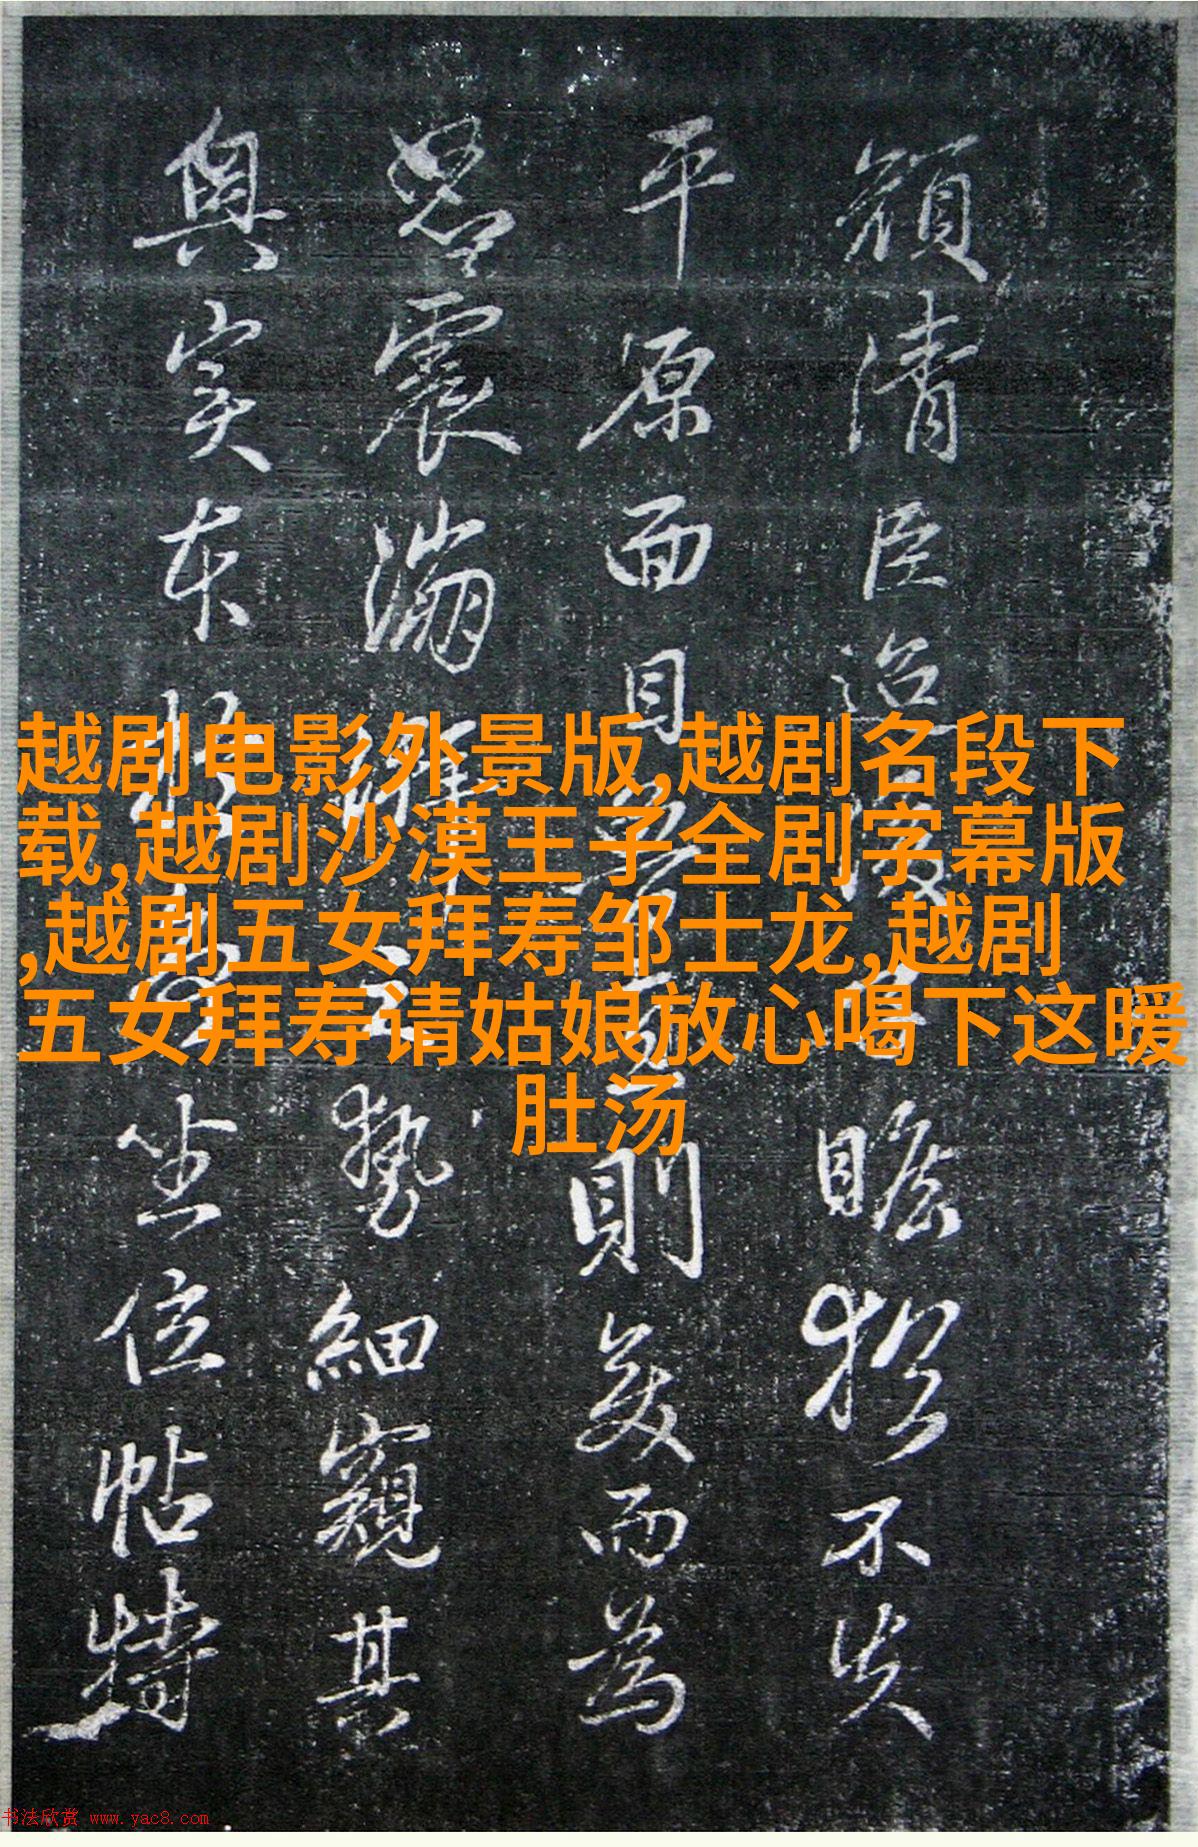 越剧电影外景版,越剧名段下
载,越剧沙漠王子全剧字幕版
,越剧五女拜寿邹士龙,越剧
五女拜寿请姑娘放心喝下这暖
肚汤
顔清臣迢
瞻松不失
平原面目
則矣而為
思翁震滿
勢細窺其
與宋
坐位帖特
书法欣赏 www.yac8.com